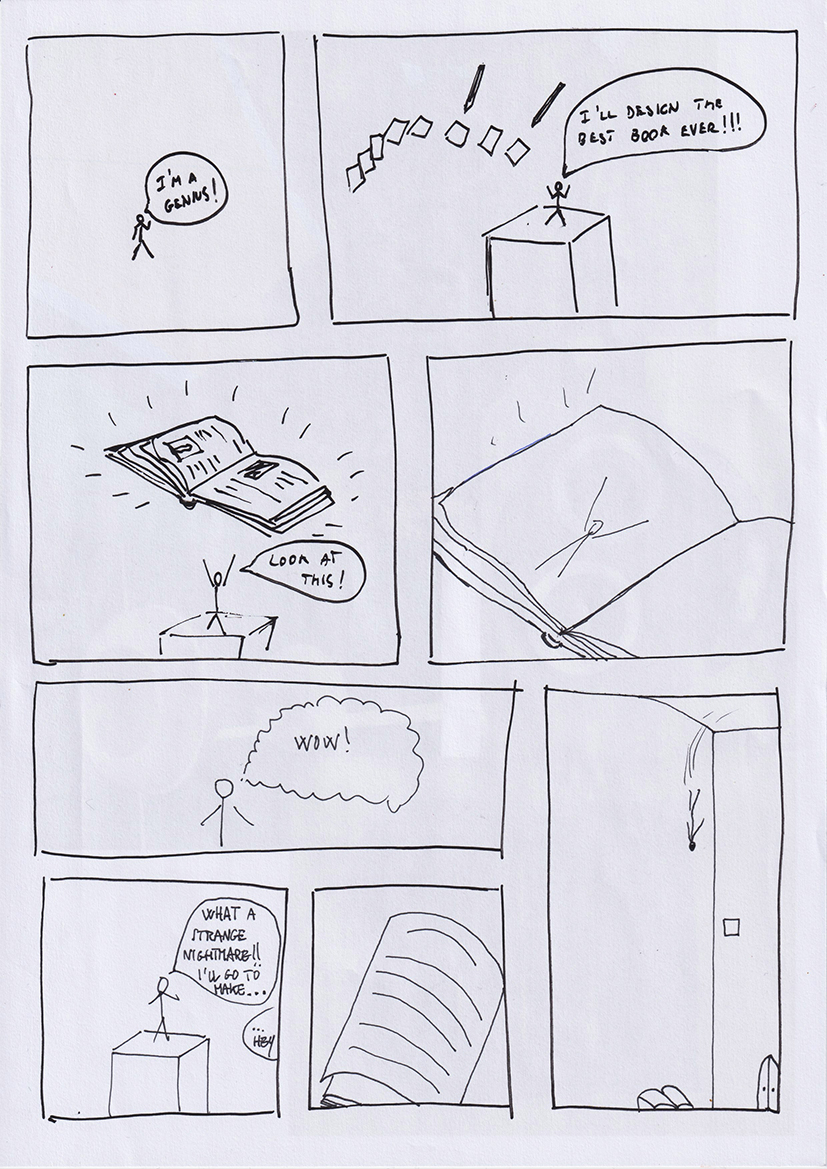 I'M A
GENIUS!
I'LL DESIGN THE
BEST BOOK EVER!!!
LOOK AT
THIS!
WOW!
WHAT A
STRANGE
NIGHTMARE!!
I'LL GO TO
MAKE...
...
HEY